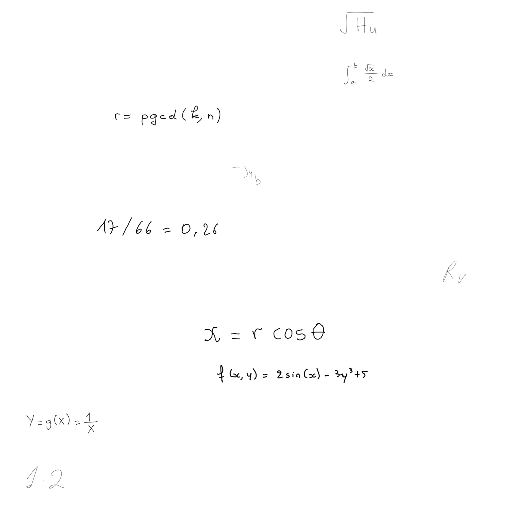 √Hu
∫_a^b √x/2 dx
r = pgcd(k, n)
17/66 = 0,26
R_y
x = r cos θ
f(x, y) = 2 sin(x) - 3y³ + 5
Y = g(x) = 1/x
1.2